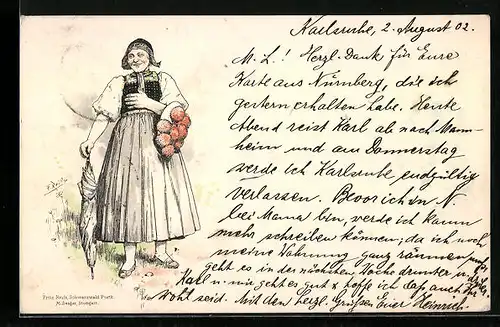 Karlsruhe, 2. August 02.
M. L.! Herzl. Dank für Eure
Karte aus Nürnberg, die ich
gestern erhalten habe. Heute
Abend reist Karl ab nach Mann-
heim und am Donnerstag
werde ich Karlsruhe endgültig
verlassen. Bevor ich in N.
bei Mama bin, werde ich kaum
mehr schreiben können; da ich noch
meine Wohnung ganz räumen muß,
geht es in der nächsten Woche drunter u. drüber.
Karl u. mir geht es gut & hoffe ich daß auch Ihr
wohl seid. Mit den herzl. Grüßen Euer Heinrich
Fritz Reiss, Schwarzwald Tracht.
M. Seeger, Stuttgart.